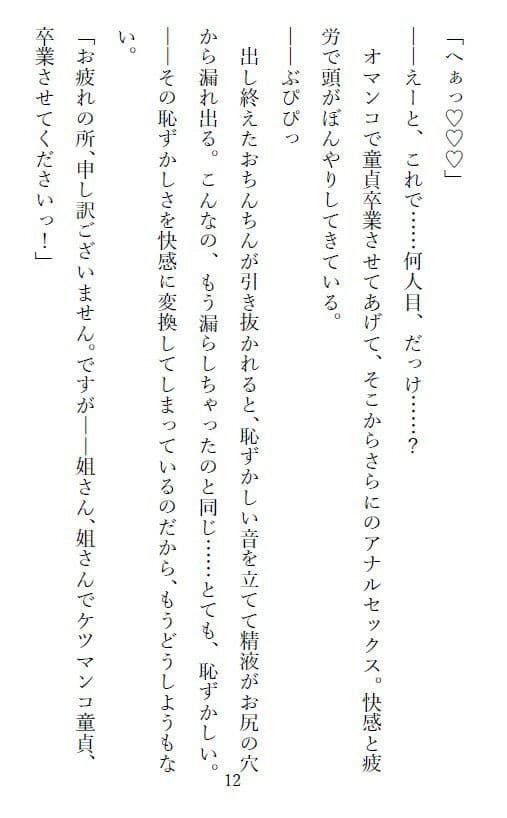 「へぁっ♡♡♡」
――えーと、これで……何人目、だっけ……？
オマンコで童貞卒業させてあげて、そこからさらにのアナルセックス。快感と疲
労で頭がぼんやりしてきている。
――ぶぴぴっ
出し終えたおちんちんが引き抜かれると、恥ずかしい音を立てて精液がお尻の穴
から漏れ出る。こんなの、もう漏らしちゃったのと同じ……とても、恥ずかしい。
――その恥ずかしさを快感に変換してしまっているのだから、もうどうしようもな
い。
「お疲れの所、申し訳ございません。ですが――姐さん、姐さんでケツマンコ童貞、
卒業させてくださいっ！」
12